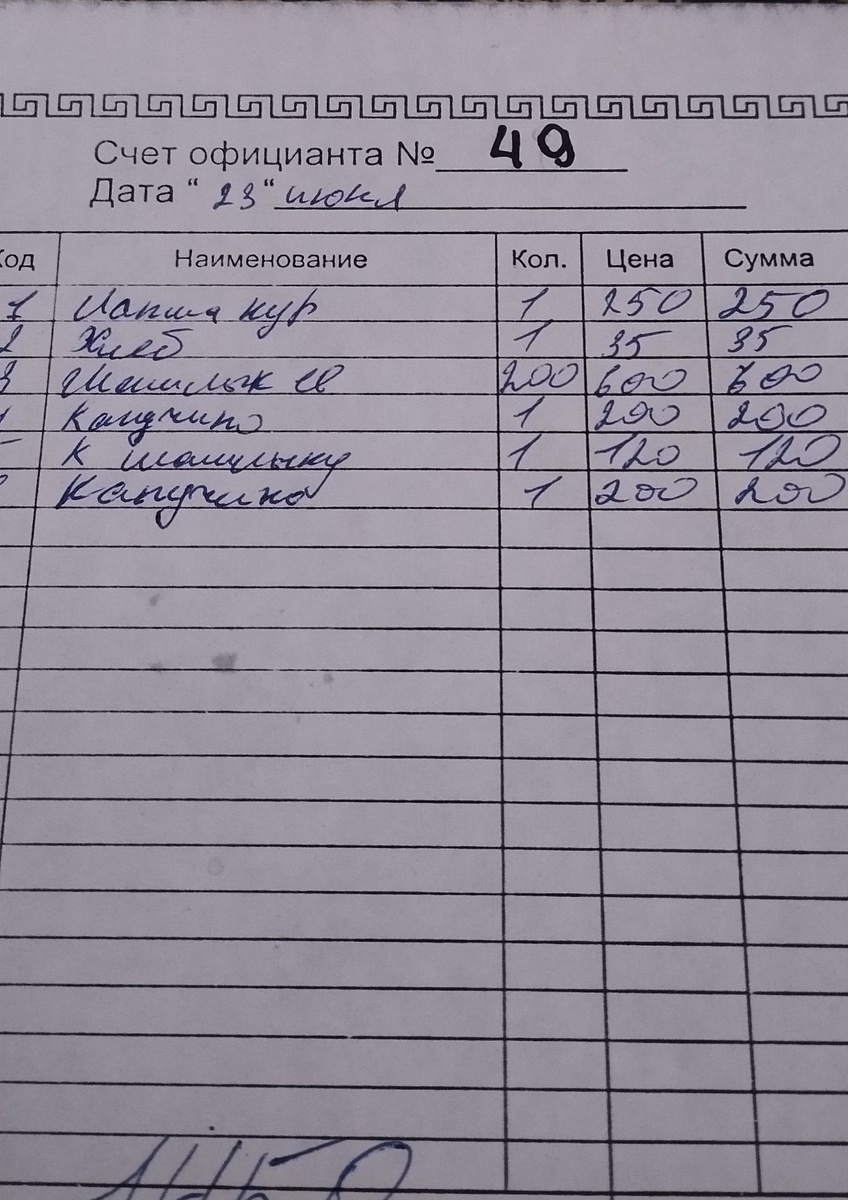 Счет официанта № 49
Дата "23" июня
Код Наименование Кол. Цена Сумма
1 Лапша кур 1 250 250
2 Хлеб 1 35 35
3 Шашлык св 200 600 600
Капучино 1 200 200
К шашлыку 1 120 120
Капучино 1 200 200